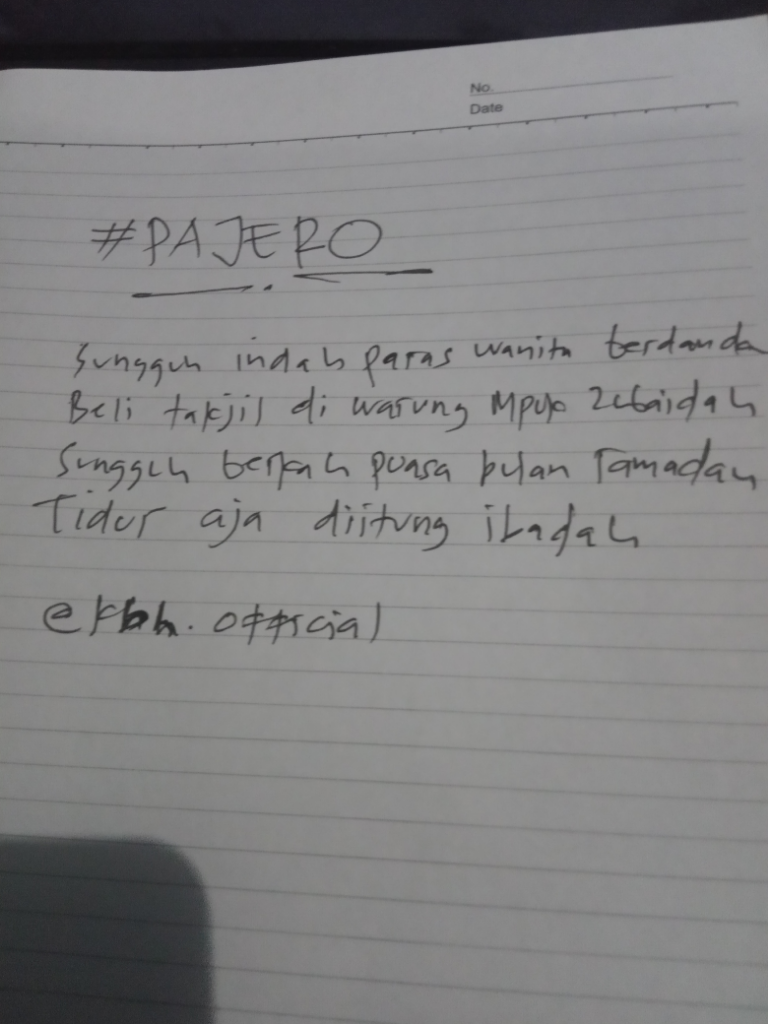 No.
Date
#PAJERO
Sungguh indah paras wanita berdanda
Beli takjil di warung Mpok Zubaidah
Sungguh berkah puasa bulan Ramadan
Tidur aja diitung ibadah
official